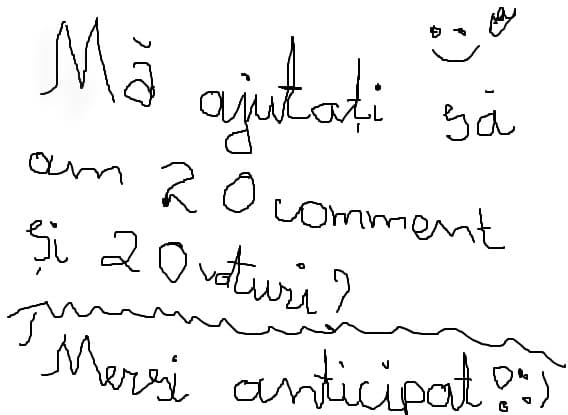 Mă ajutați să
am 20 comment
și 20 voturi?
Mersi anticipat!:)